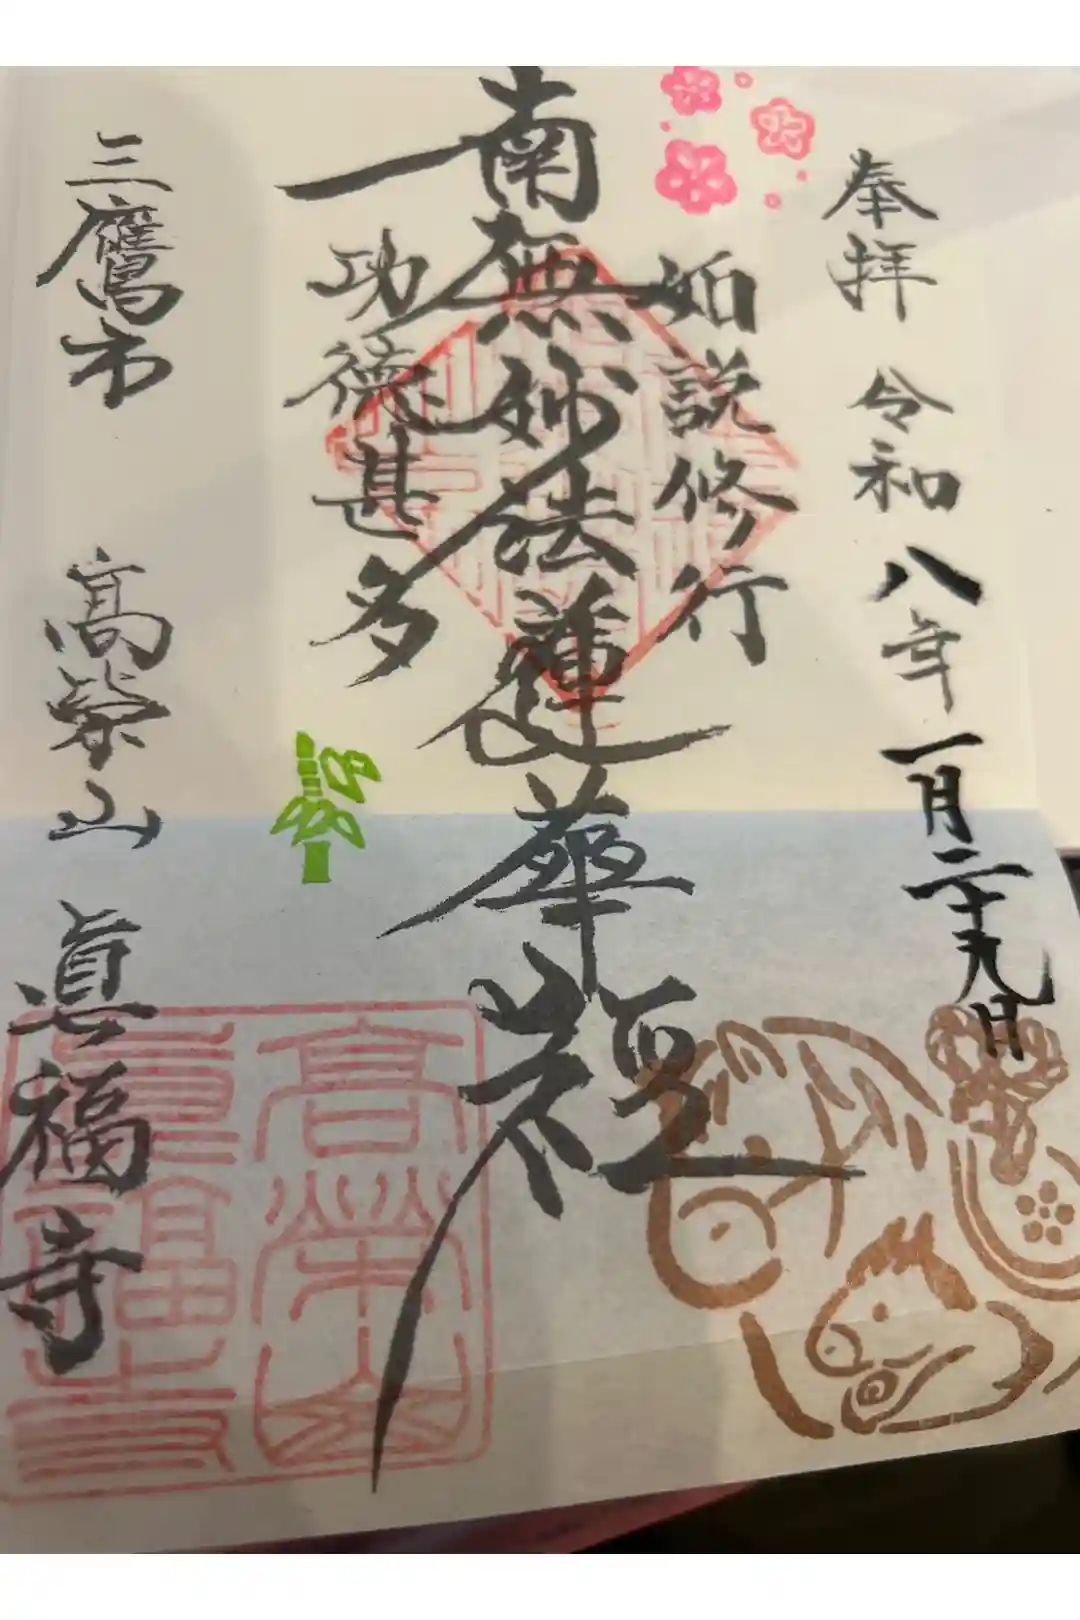 奉拝 令和八年一月二十九日
如説修行
南無妙法蓮華経
功徳甚多
三鷹市 高栄山 眞福寺
高栄山
眞福寺